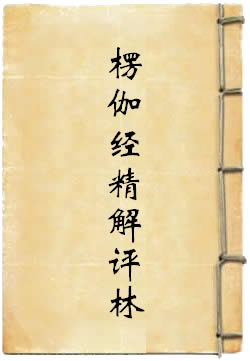 楞伽经精解评林